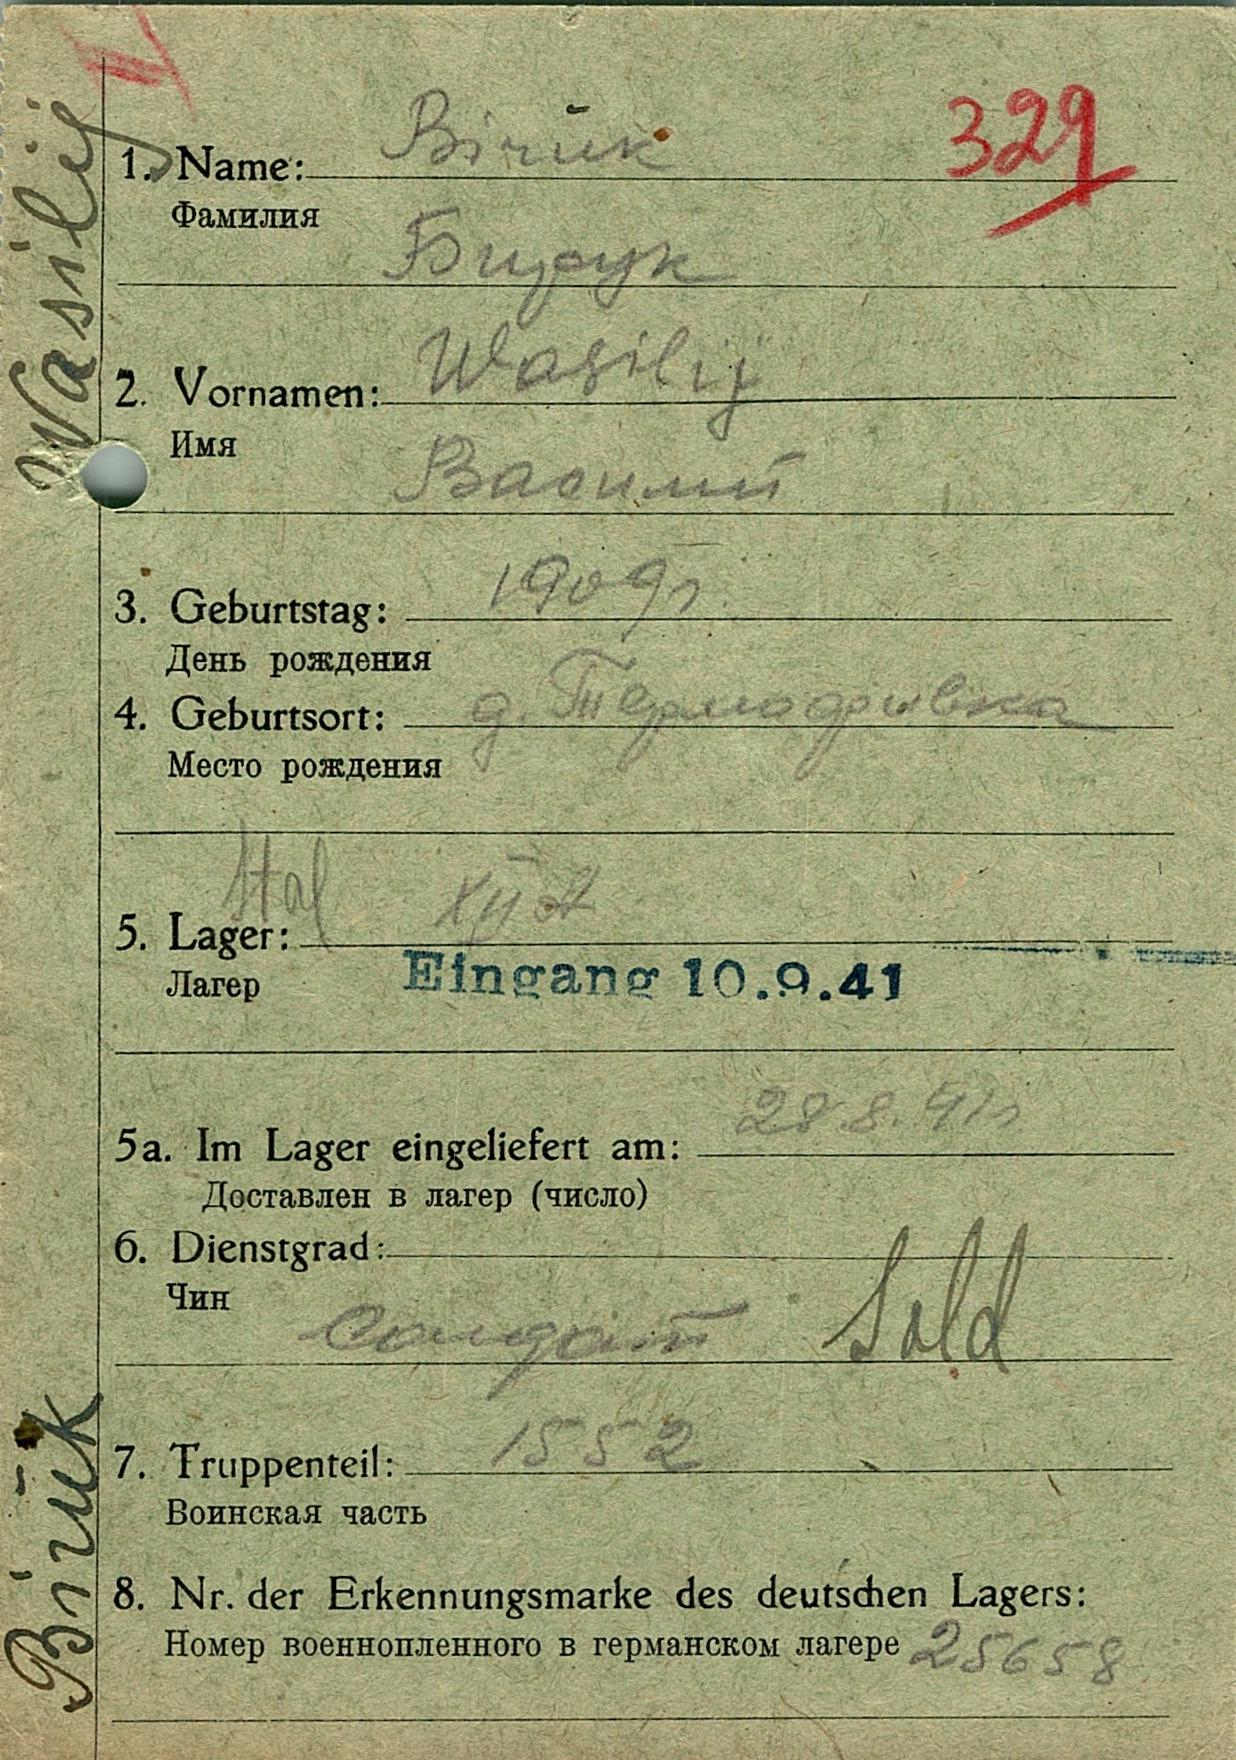 329
1. Name: Birŭk
Фамилия
Бирук
2. Vornamen: Wasilij
Имя
Василий
3. Geburtstag: 1909 г.
День рождения
4. Geburtsort: д.
Место рождения
Stal XII A
5. Lager:
Лагер
Eingang 10.9.41
5a. Im Lager eingeliefert am: 28.8.41 г
Доставлен в лагер (число)
6. Dienstgrad:
Чин
солдат Sold
7. Truppenteil: 1552
Воинская часть
8. Nr. der Erkennungsmarke des deutschen Lagers:
Номер военнопленного в германском лагере 25658
Birŭk Wasilij